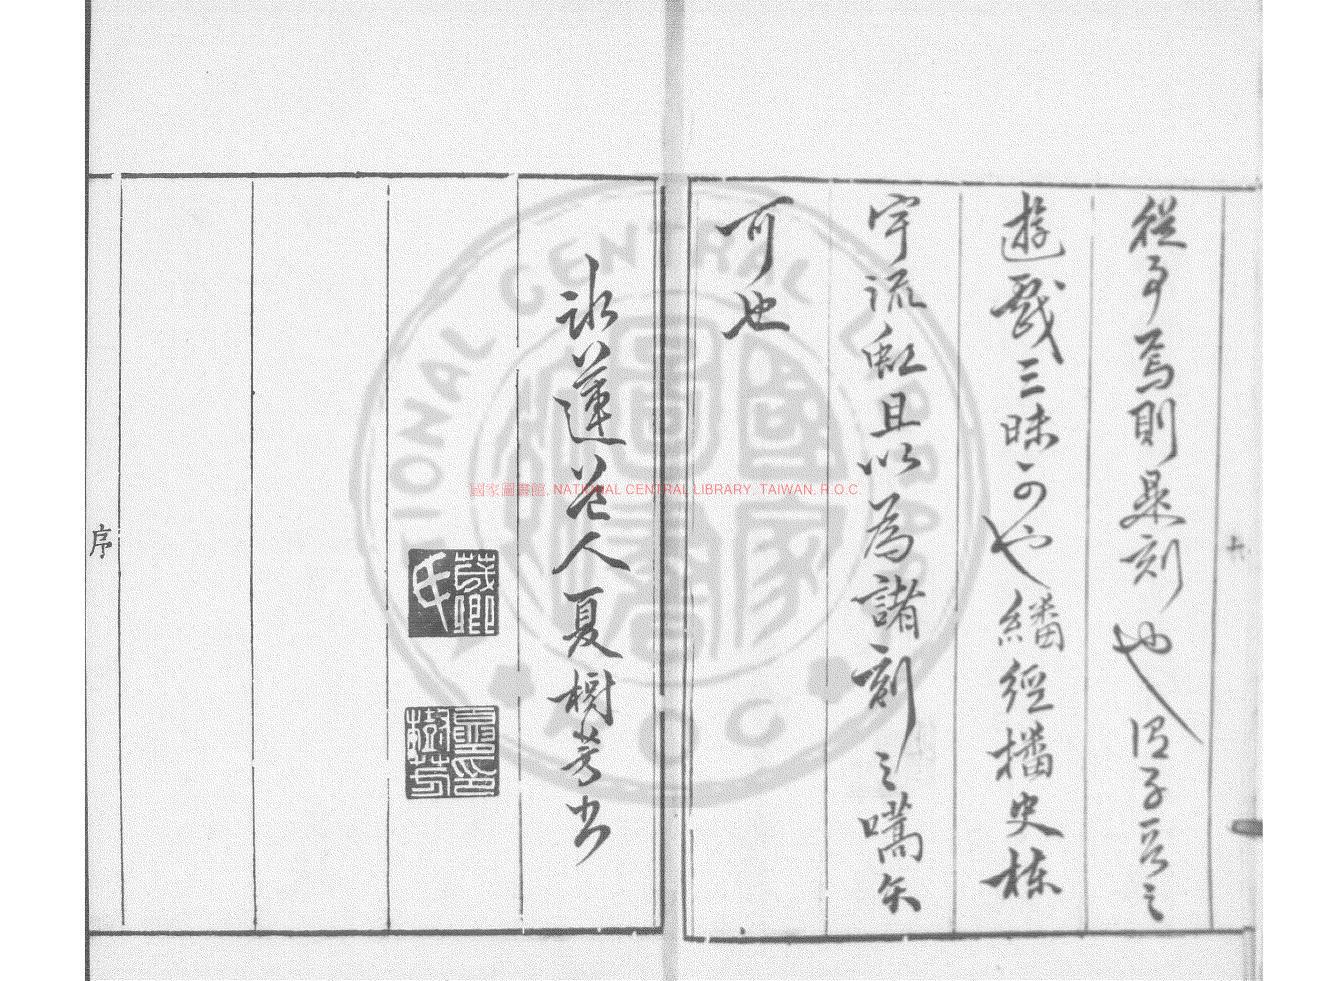 從事焉則是刻也謂子晉之
遊戲三昧可也繙經播史棟
宇流虹且以為諸刻之嚆矢
可也
冰蓮道人夏樹芳書
茂卿氏
夏印樹芳
序
國家圖書館, NATIONAL CENTRAL LIBRARY, TAIWAN, R.O.C.